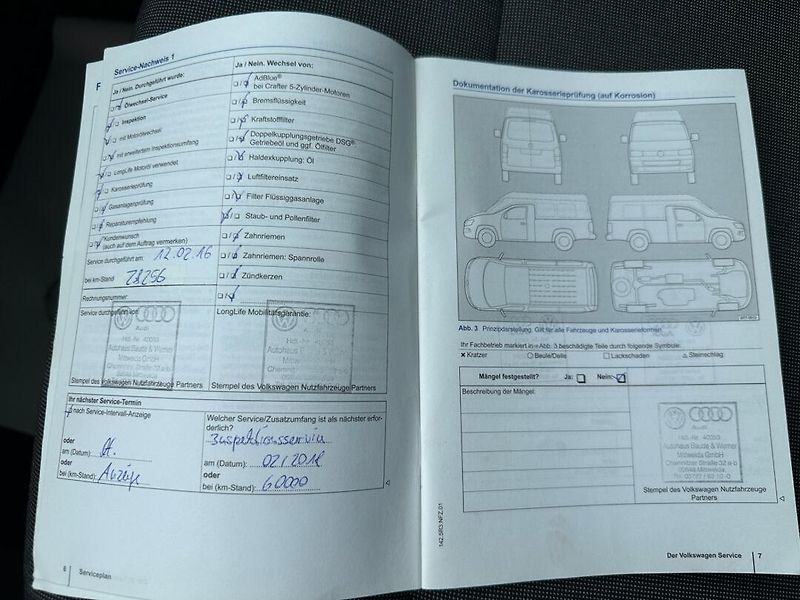 Service-Nachweis 1
Ja / Nein. Durchgeführt wurde:
Ölwechsel-Service
Inspektion
mit Motorölwechsel
mit erweitertem Inspektionsumfang
LongLife Motoröl verwendet
Karosserieprüfung
Gasanlagenprüfung
Reparaturempfehlung
Kundenwunsch
(auch auf dem Auftrag vermerken)
Service durchgeführt am: 12.02.16
bei km-Stand 28256
Rechnungsnummer:
Service durchgeführt von:
Audi
Hdl.-Nr. 40053
Autohaus Baude & Werner
Mittweida GmbH
Stempel des Volkswagen Nutzfahrzeuge Partners
Ja / Nein. Wechsel von:
AdBlue®
bei Crafter 5-Zylinder-Motoren
Bremsflüssigkeit
Kraftstofffilter
Doppelkupplungsgetriebe DSG®:
Getriebeöl und ggf. Ölfilter
Haldexkupplung: Öl
Luftfiltereinsatz
Filter Flüssiggasanlage
Staub- und Pollenfilter
Zahnriemen
Zahnriemen: Spannrolle
Zündkerzen
LongLife Mobilitätsgarantie:
Stempel des Volkswagen Nutzfahrzeuge Partners
Ihr nächster Service-Termin
nach Service-Intervall-Anzeige
oder
am (Datum):
oder
bei (km-Stand): Anzeige
Welcher Service/Zusatzumfang ist als nächster erfor-
derlich?
am (Datum):
oder
bei (km-Stand): 60000
6 Serviceplan
Dokumentation der Karosserieprüfung (auf Korrosion)
Abb. 3 Prinzipdarstellung. Gilt für alle Fahrzeuge und Karosserieformen
Ihr Fachbetrieb markiert in Abb. 3 beschädigte Teile durch folgende Symbole:
Kratzer Beule/Delle Lackschaden Steinschlag
Mängel festgestellt? Ja: Nein:
Beschreibung der Mängel:
Audi
Hdl.-Nr. 40053
Autohaus Baude & Werner
Mittweida GmbH
Chemnitzer Straße 32 a-b
Stempel des Volkswagen Nutzfahrzeuge
Partners
142.5R3.NFZ.01
Der Volkswagen Service 7